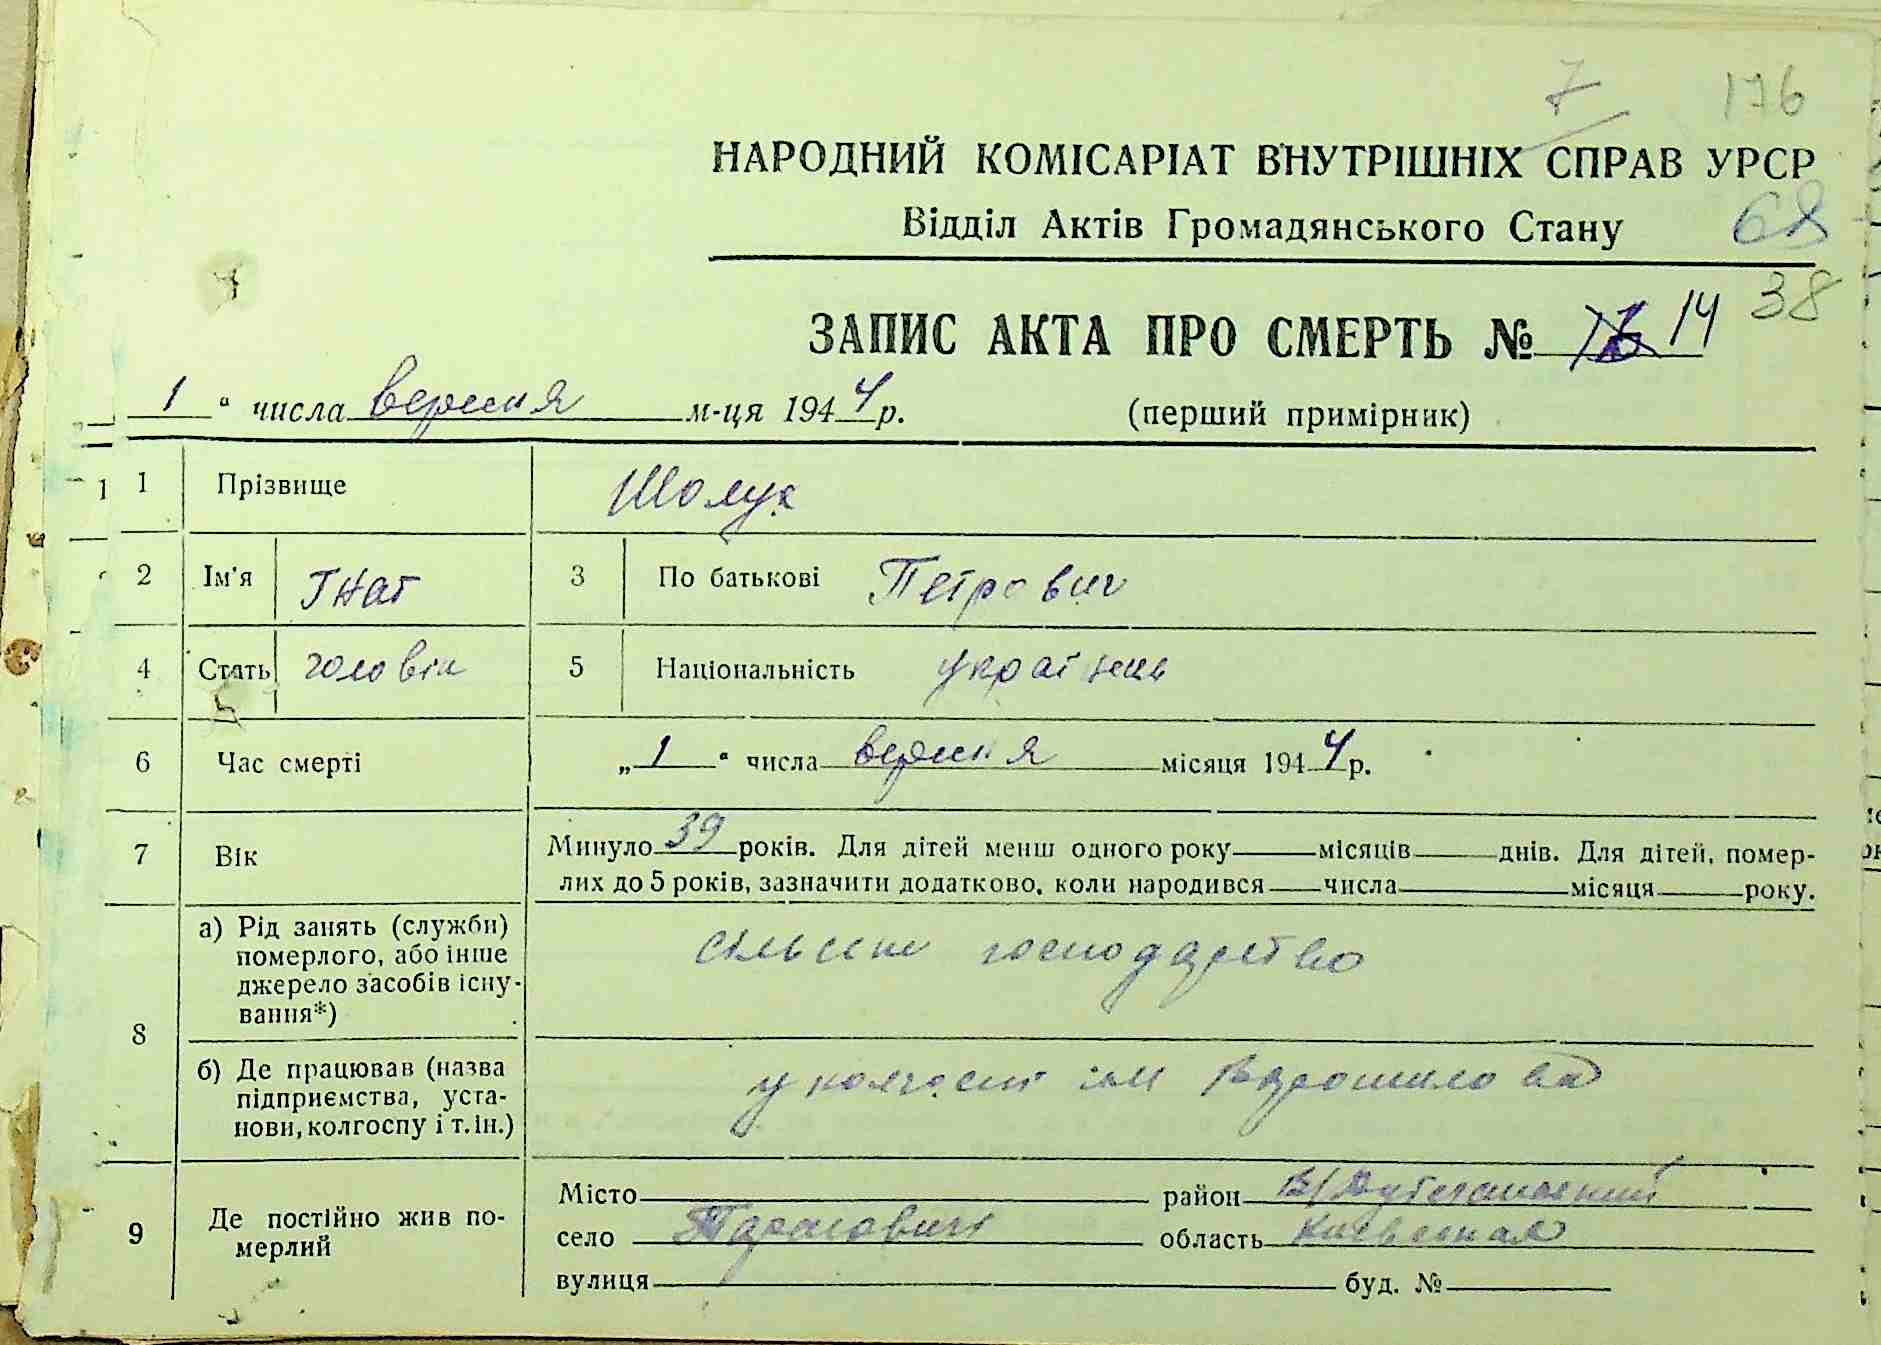 7 176
НАРОДНИЙ КОМІСАРІАТ ВНУТРІШНІХ СПРАВ УРСР
Відділ Актів Громадянського Стану 68
38
ЗАПИС АКТА ПРО СМЕРТЬ № 14
1 " числа вересня м-ця 1944 р. (перший примірник)
1 Прізвище Шолук
2 Ім'я Гнат 3 По батькові Петрович
4 Стать головік 5 Національність українець
6 Час смерті „ 1 " числа вересня місяця 1944 р.
7 Вік Минуло 39 років. Для дітей менш одного року місяців днів. Для дітей, помер-
лих до 5 років, зазначити додатково, коли народився числа місяця року.
8 а) Рід занять (служби)
померлого, або інше
джерело засобів існу-
вання*)
сільське господарство
б) Де працював (назва
підприємства, уста-
нови, колгоспу і т. ін.)
у колгоспі ім Ворошилова
9 Де постійно жив по-
мерлий
Місто район В/Дубечанський
село Тарасовичі область Київская
вулиця буд. №